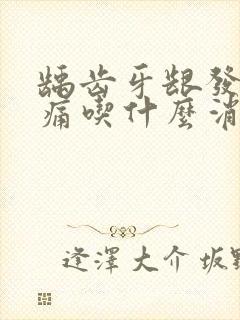 龋齿牙龈發
痛喫什麼消
逢澤大介 坂野